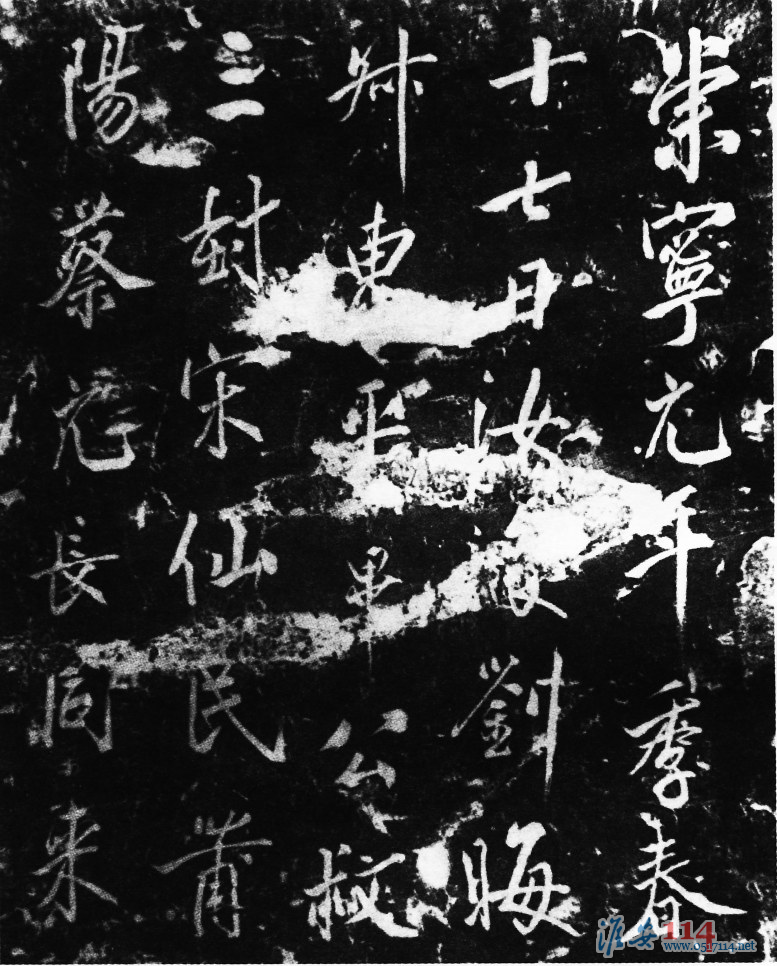 崇寧元年季春
十七日汝劉晦
叔東平畢公叔
三封宋仙民莆
陽蔡長同来
淮安114
www.0517114.net